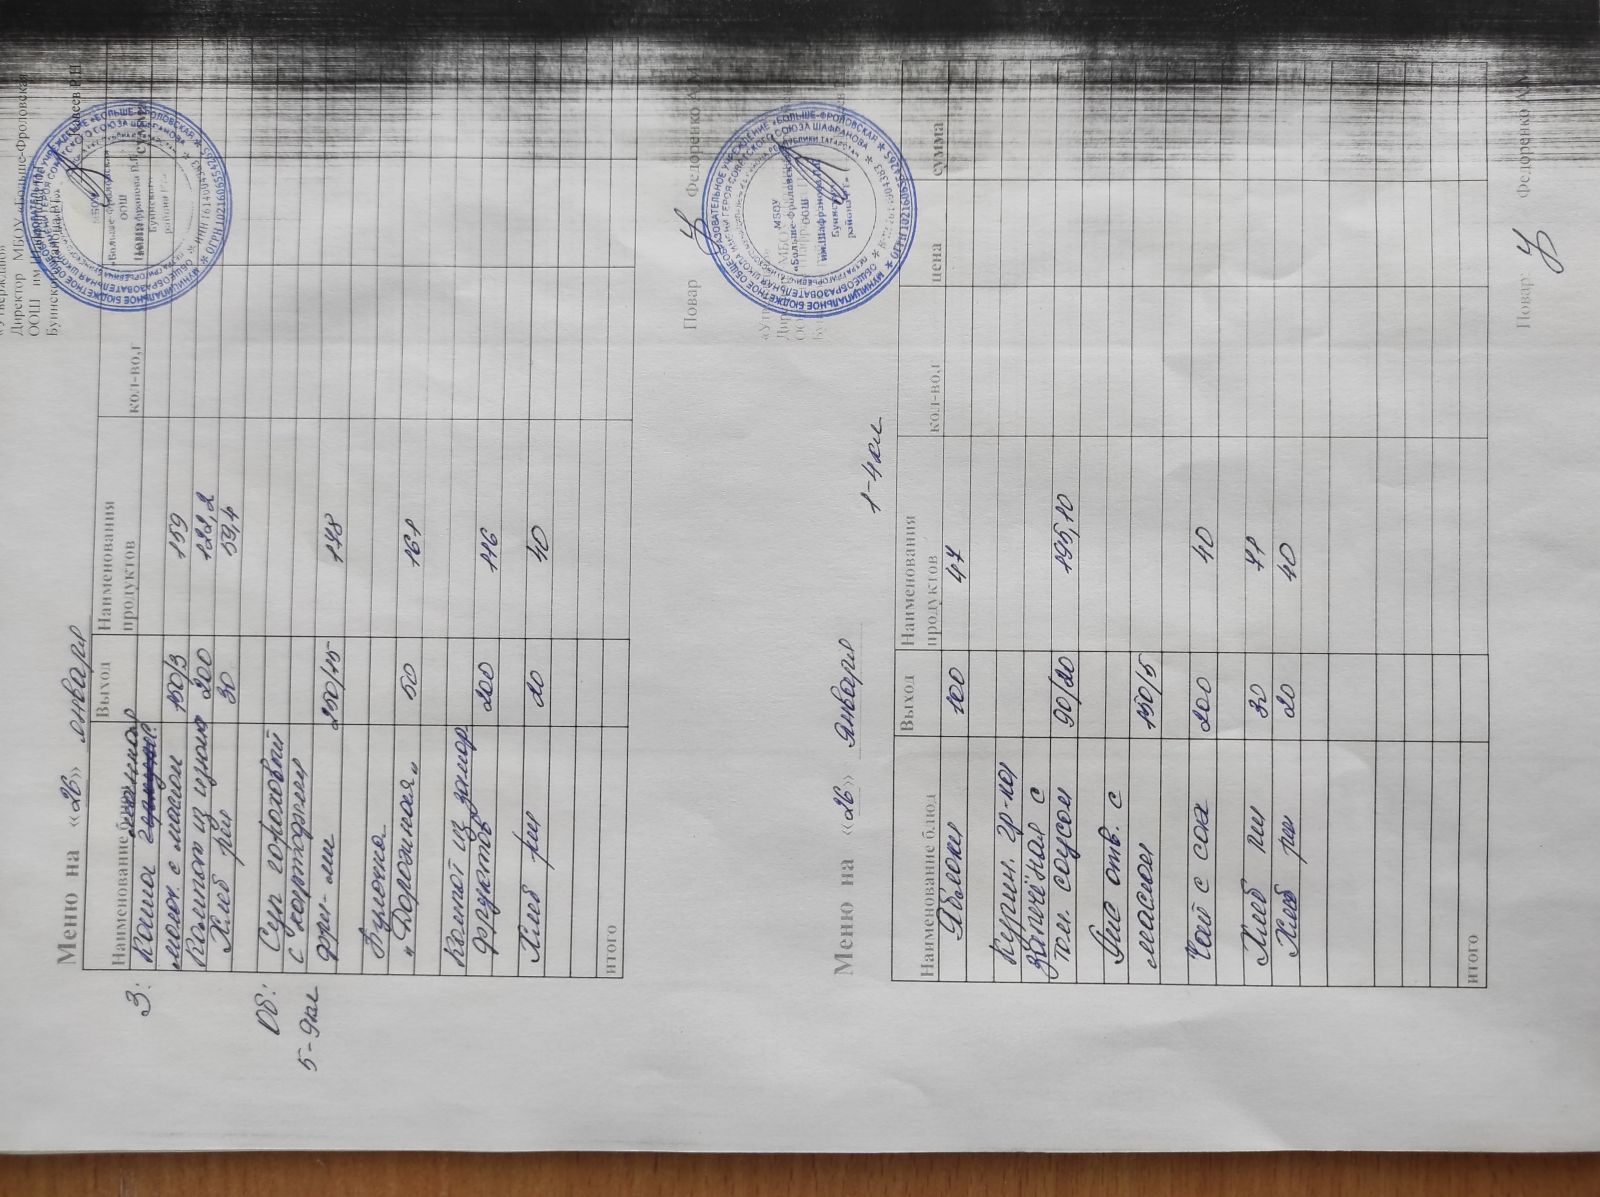 Директор МБОУ «Больше-Фроловская
ООШ им
Меню на «26» января
Наименование блюд Выход Наименования продуктов кол-во,г
З: Каша манная
молоч. с маслом 150/3 159
Компот из изюма 200 122,2
Хлеб рж 30 59,4
Об: Суп гороховый
5-9кл с картофелем
фри- ми 250/15 148
Булочка
"Дорожная" 50 161
Компот из замор
фруктов 200 116
Хлеб рж 20 40
итого
Повар Федоренко А.М
МБОУ
«Больше-Фроловская
ООШ
им.Шафранова П.Г
Буинского
района РТ»
1-4кл
Меню на «26» Января
Наименование блюд Выход Наименования продуктов кол-во,г цена сумма
Яблоки 100 47
Курин. гр-ка
запечёная с
том. соусом 90/20 195,10
Рис отв. с
маслом 150/5
Чай с сах 200 40
Хлеб пш 30 71
Хлеб рж 20 40
итого
Повар Федоренко А.М